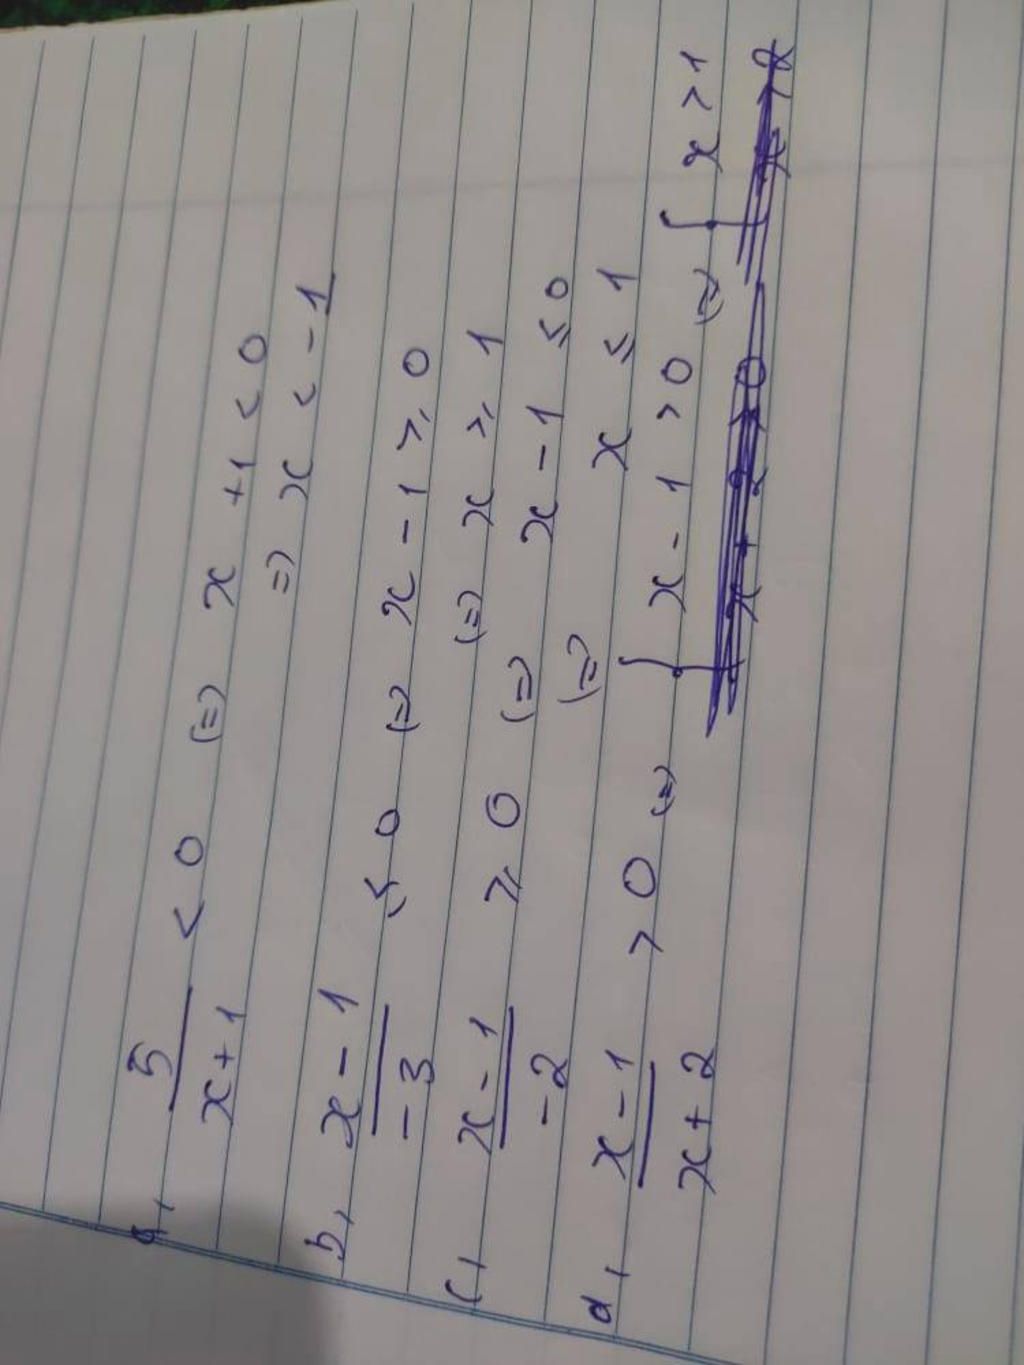 a, 5/(x+1) < 0 (=) x + 1 < 0
=) x < -1
b, (x-1)/(-3) ≤ 0 (=) x - 1 ≥ 0
(=) x ≥ 1
c, (x-1)/(-2) ≥ 0 (=) x - 1 ≤ 0
(=) x ≤ 1
d, (x-1)/(x+2) > 0 (=) { x - 1 > 0 (=) { x > 1